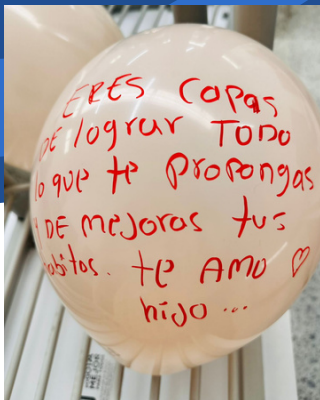 ERES CAPAS
DE lograr TODO
lo que te propongas
Y DE mejoras tus
habitos. te AMO ♡
hijo ...
MEJOR